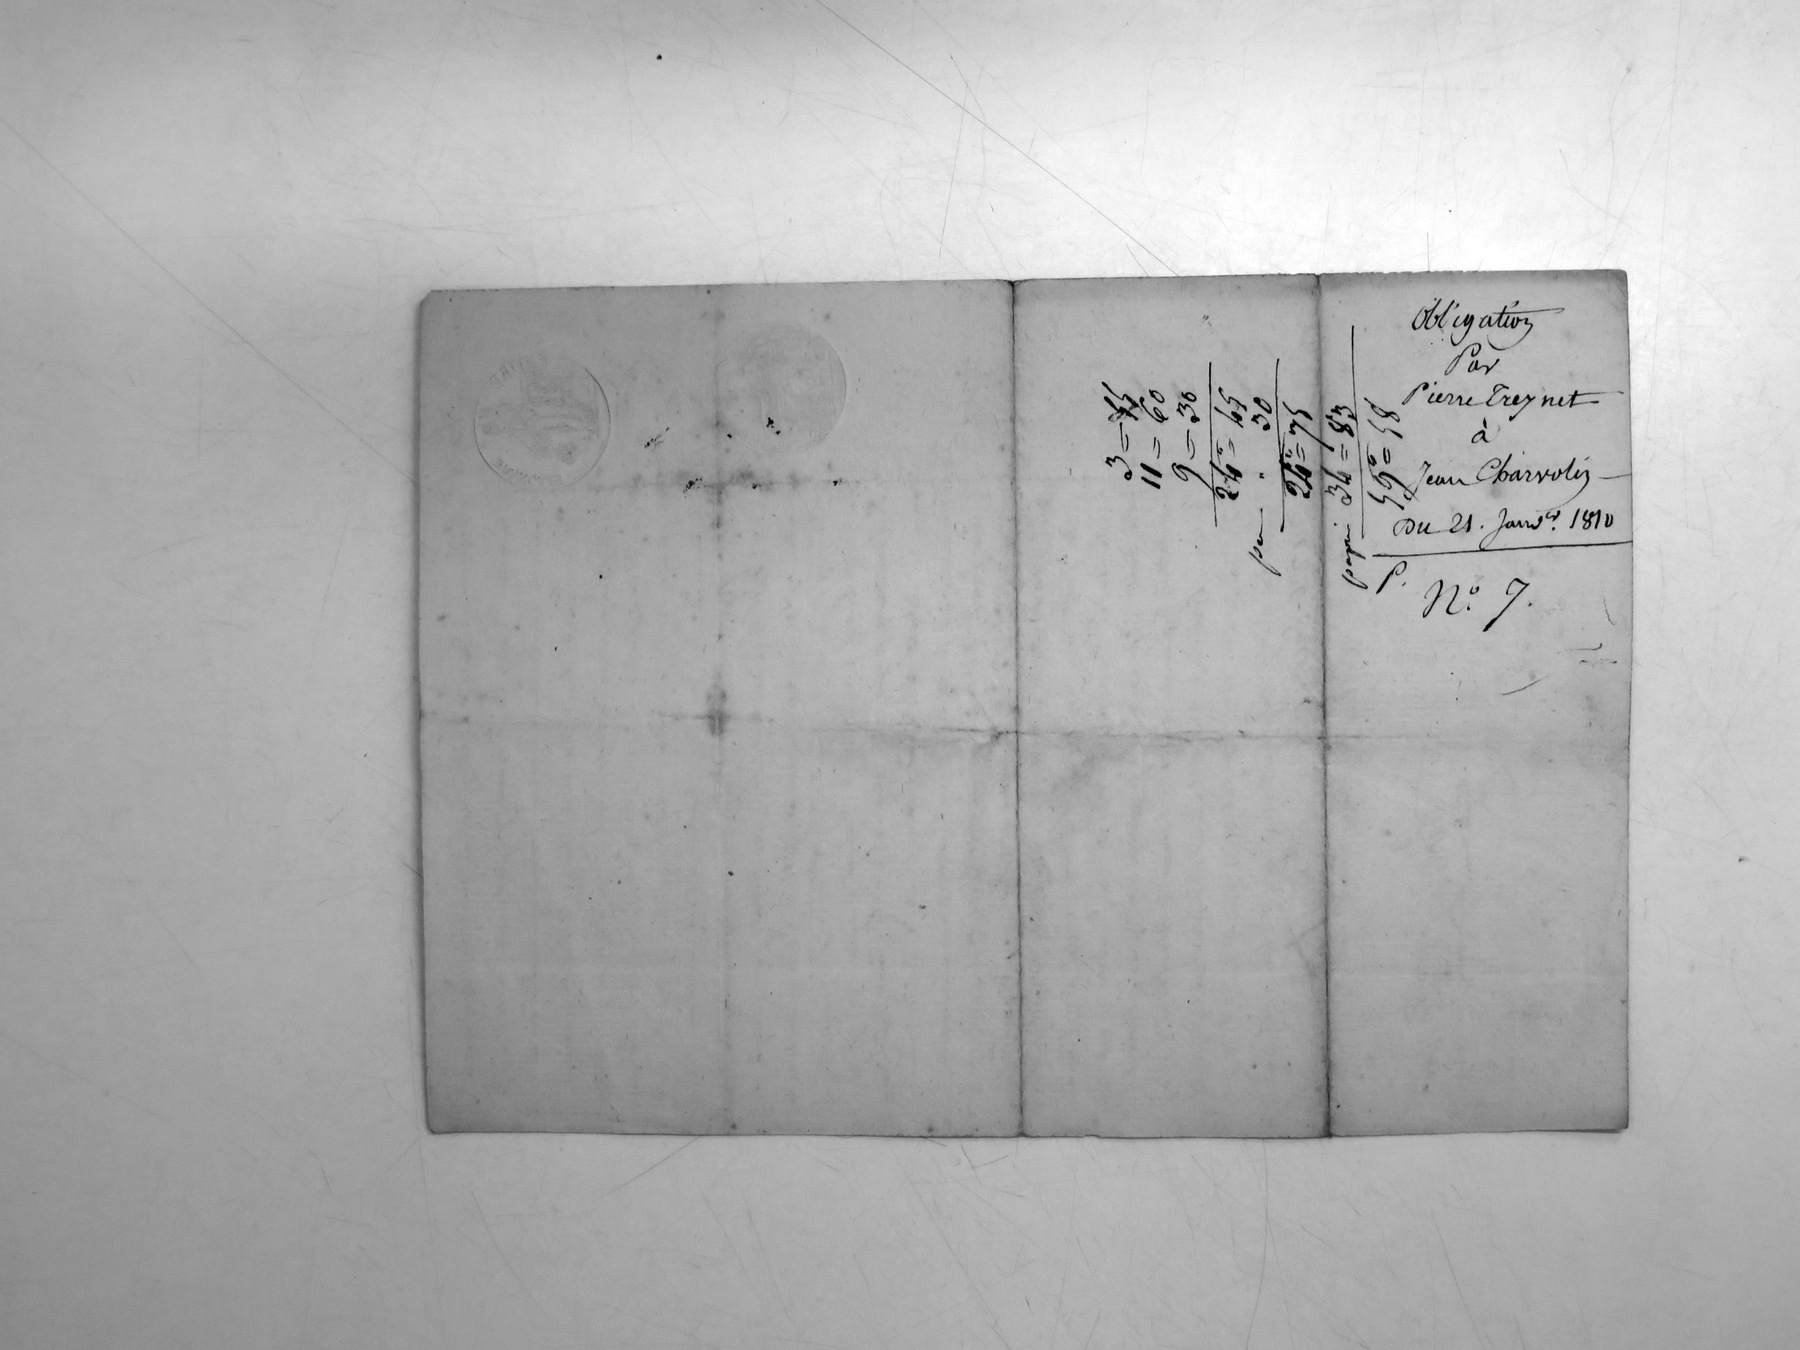 Obligation
Par
Pierre Treynet
à
Jean Charvolin
Du 21. Janver. 1810
P.
No. 7.
3 = 45
11 = 60
9 = 30
24 = 45
30
24 = 75
34 = 83
59 = 58